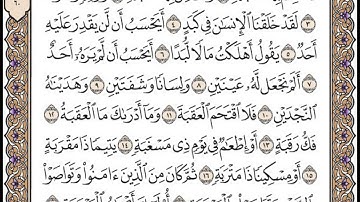 ٣ لَقَدْ خَلَقْنَا ٱلْإِنسَـٰنَ فِى كَبَدٍ ٤ أَيَحْسَبُ أَن لَّن يَقْدِرَ عَلَيْهِ
أَحَدٌ ٥ يَقُولُ أَهْلَكْتُ مَالًا لُّبَدًا ٦ أَيَحْسَبُ أَن لَّمْ يَرَهُۥٓ أَحَدٌ
٧ أَلَمْ نَجْعَل لَّهُۥ عَيْنَيْنِ ٨ وَلِسَانًا وَشَفَتَيْنِ ٩ وَهَدَيْنَـٰهُ
ٱلنَّجْدَيْنِ ١٠ فَلَا ٱقْتَحَمَ ٱلْعَقَبَةَ ١١ وَمَآ أَدْرَىٰكَ مَا ٱلْعَقَبَةُ ١٢
فَكُّ رَقَبَةٍ ١٣ أَوْ إِطْعَـٰمٌ فِى يَوْمٍ ذِى مَسْغَبَةٍ ١٤ يَتِيمًا ذَا مَقْرَبَةٍ
١٥ أَوْ مِسْكِينًا ذَا مَتْرَبَةٍ ١٦ ثُمَّ كَانَ مِنَ ٱلَّذِينَ ءَامَنُوا۟ وَتَوَاصَوْا۟